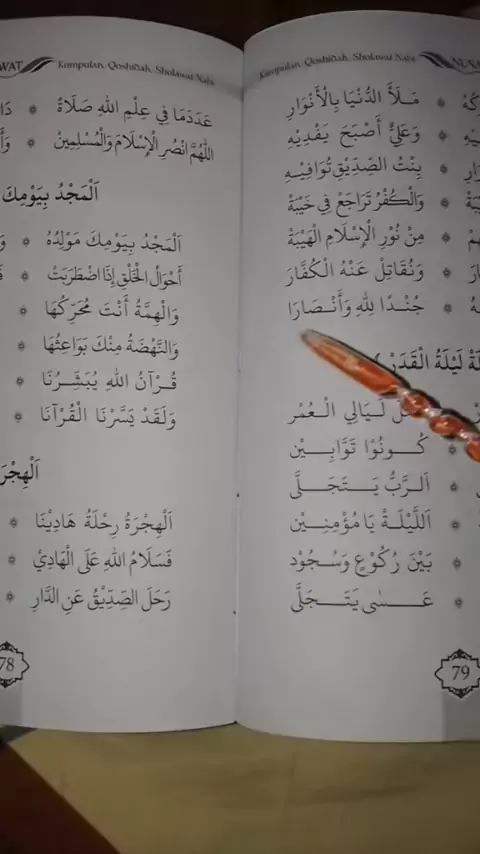 WAT
Kumpulan, Qoshidah, Sholawat Nabi
عَدَدَمَا فِي عِلْمِ اللهِ صَلَاةً
اللّٰهُمَّ انْصُرِ الْإِسْلَامَ وَالْمُسْلِمِيْنَ
اَلْمَجْدُ بِيَوْمِكَ
اَلْمَجْدُ بِيَوْمِكَ مَوْلِدُهُ
أَحْوَالُ الْخَلْقِ إِذَا اضْطَرَبَتْ
وَالْهِمَّةُ أَنْتَ مُحَرِّكُهَا
وَالنَّهْضَةُ مِنْكَ بَوَاعِثُهَا
قُرْآنُ اللهِ يُبَشِّرُنَا
وَلَقَدْ يَسَّرْنَا الْقُرْآنَا
اَلْهِجْرَ
اَلْهِجْرَةُ رِحْلَةُ هَادِيْنَا
فَسَلَامُ اللهِ عَلَى الْهَادِيْ
رَحَلَ الصِّدِّيْقُ عَنِ الدَّارِ
78
Kumpulan, Qoshidah, Sholawat Nabi
مَلَأَ الدُّنْيَا بِالْأَنْوَارِ
وَعَلِيٌّ أَصْبَحَ يَفْدِيْهِ
بِنْتُ الصِّدِّيْقِ تُوَافِيْهِ
وَالْكُفْرُ تَرَاجَعَ فِي خَيْبَةْ
مِنْ نُوْرِ الْإِسْلَامِ الْهَيْبَةْ
وَنُقَاتِلُ عَنْهُ الْكُفَّارَ
جُنْدًا لِلّٰهِ وَأَنْصَارَا
لَيْلَةُ الْقَدَرْ
لَيَالِي الْعُمْرِ
كُوْنُوْا تَوَّابِيْنَ
اَلرَّبُّ يَتَجَلَّى
اَللَّيْلَةْ يَا مُؤْمِنِيْنَ
بَيْنَ رُكُوْعٍ وَسُجُوْدْ
عَسٰى يَتَجَلَّى
79